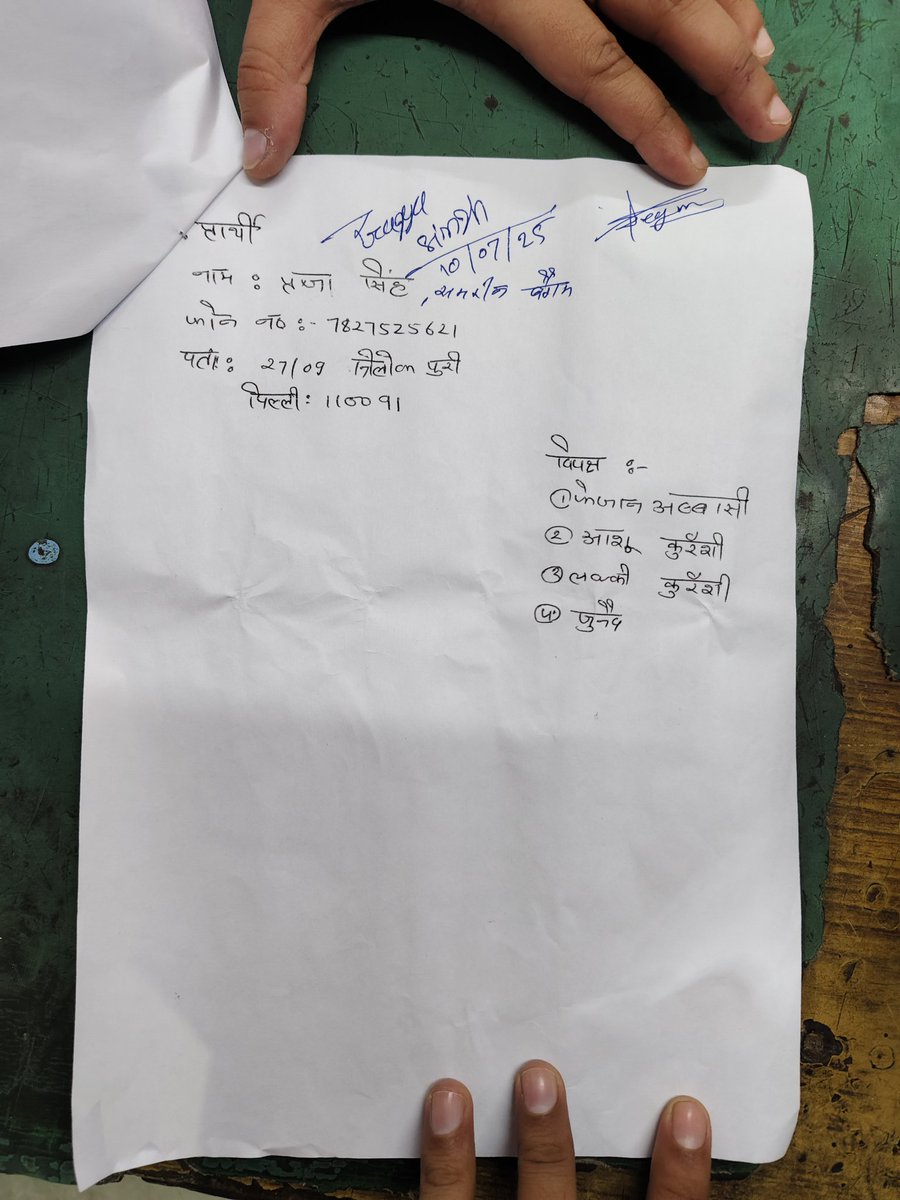 प्रार्थी
singh
10/07/25
नाम : प्रज्ञा सिंह
समरीन बेगम
फोन नं० :- 7827525621
पता : 27/09 त्रिलोक पुरी
दिल्ली : 110091
विपक्ष :-
① फैजान अब्बासी
② आशु कुरैशी
③ लक्की कुरैशी
④ जुनैद